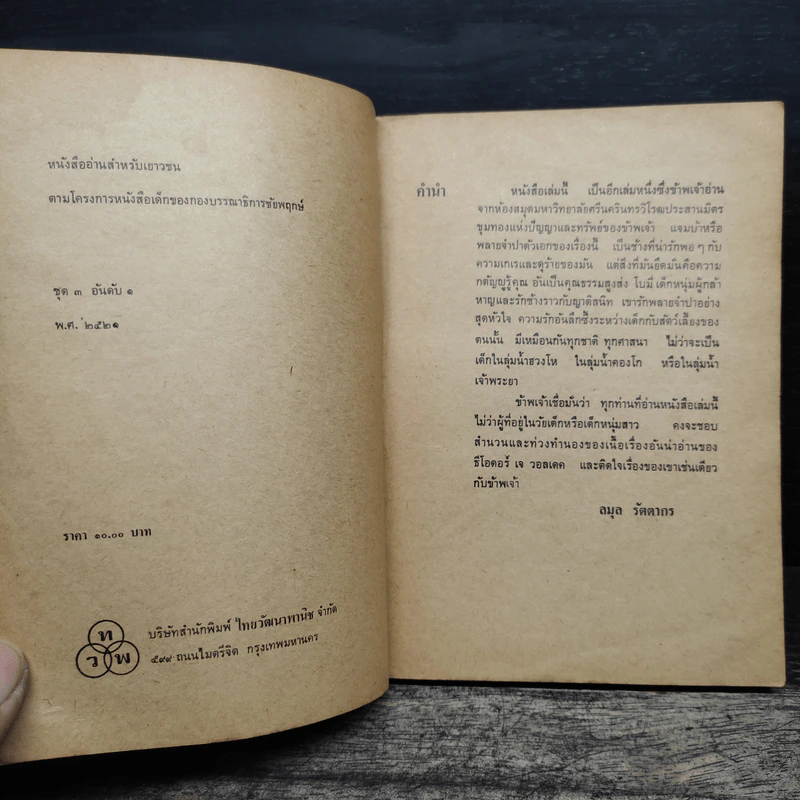 หนังสืออ่านสำหรับเยาวชน
ตามโครงการหนังสือเด็กของกองบรรณาธิการชัยพฤกษ์
ชุด ๓ อันดับ ๑
พ.ศ. ๒๕๒๑
ราคา ๑๐.๐๐ บาท
ท
ว พ
บริษัทสำนักพิมพ์ ไทยวัฒนาพานิช จำกัด
๕๙๙ ถนนไมตรีจิต กรุงเทพมหานคร
คำนำ
หนังสือเล่มนี้ เป็นอีกเล่มหนึ่งซึ่งข้าพเจ้าอ่าน
จากห้องสมุดมหาวิทยาลัยศรีนครินทรวิโรฒประสานมิตร
ขุมทองแห่งปัญญาและทรัพย์ของข้าพเจ้า แจมบ้าหรือ
พลายจำปาตัวเอกของเรื่องนี้ เป็นช้างที่น่ารักพอ ๆ กับ
ความเกเรและดุร้ายของมัน แต่สิ่งที่มันยึดมั่นคือความ
กตัญญูรู้คุณ อันเป็นคุณธรรมสูงส่ง โบมี เด็กหนุ่มผู้กล้า
หาญและรักช้างราวกับญาติสนิท เขารักพลายจำปาอย่าง
สุดหัวใจ ความรักอันลึกซึ้งระหว่างเด็กกับสัตว์เลี้ยงของ
ตนนั้น มีเหมือนกันทุกชาติ ทุกศาสนา ไม่ว่าจะเป็น
เด็กในลุ่มน้ำฮวงโห ในลุ่มน้ำคองโก หรือในลุ่มน้ำ
เจ้าพระยา
ข้าพเจ้าเชื่อมั่นว่า ทุกท่านที่อ่านหนังสือเล่มนี้
ไม่ว่าผู้ที่อยู่ในวัยเด็กหรือเด็กหนุ่มสาว คงจะชอบ
สำนวนและท่วงทำนองของเนื้อเรื่องอันน่าอ่านของ
ธีโอดอร์ เจ วอลเดค และติดใจเรื่องของเขาเช่นเดียว
กับข้าพเจ้า
ลมุล รัตตากร